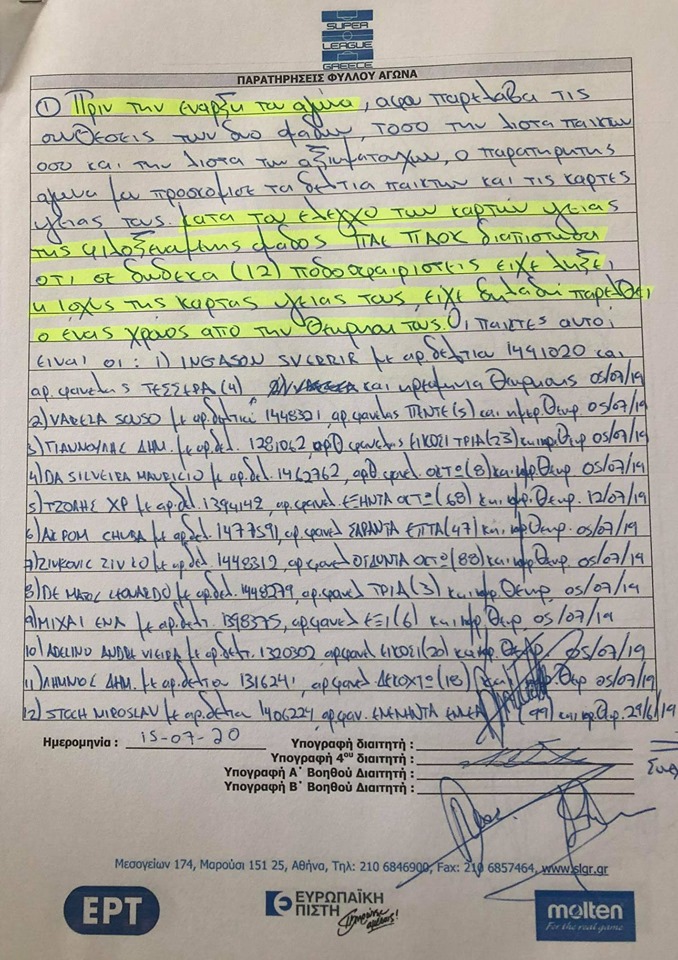 SUPER
LEAGUE
GREECE
ΠΑΡΑΤΗΡΗΣΕΙΣ ΦΥΛΛΟΥ ΑΓΩΝΑ
① Πριν την εναρξη του αγωνα, αφου παρελαβα τις
συνθεσεις των δυο φαδων, τοσο την λιστα παικτων
οσο και την λιστα των αξιωματουχων, ο παρατηρητης
αγωνα μου προσκομισε τα δελτια παικτων και τις καρτες
υγειας τους. Κατα τον ελεγχο των καρτων υγειας
της φιλοξενουμενης ομαδος ΠΑΕ ΠΑΟΚ διαπιστωθη
οτι σε δωδεκα (12) ποδοσφαιριστες ειχε ληξει
η ισχυς της καρτας υγειας τους, ειχε δηλαδη παρελθει
ο ενας χρονος απο την θεωρηση τους. Οι παικτες αυτοι
ειναι οι: 1) INGASON SVERRIR με αρ. δελτιου 1491020 και
αρ. φανελας ΤΕΣΣΕΡΑ (4) και ημερομηνια θεωρησης 05/07/19
2) VARELA SONSO με αρ. δελτιου 1448321, αρ. φανελας ΠΕΝΤΕ (5) και ημερ. Θεωρ. 05/07/19
3) ΓΙΑΝΝΟΥΛΗΣ ΔΗΜ. με αρ. δελ. 1281062, αρθ φανελας ΕΙΚΟΣΙ ΤΡΙΑ (23) και ημερ. Θεωρ. 05/07/19
4) DA SILVEIRA MAURICIO με αρ. δελ. 1462762, αρθ. φανελ. ΟΚΤΩ (8) και ημερ. Θεωρ. 05/07/19
5) ΤΖΟΛΗΣ ΧΡ με αρ. δελ. 1394142, αρ. φανελ. ΕΞΗΝΤΑ ΟΚΤΩ (68) και ημερ. Θεωρ. 12/07/19
6) AKPOM CHUBA με αρ. δελ. 1477591, αρ. φανελ ΣΑΡΑΝΤΑ ΕΠΤΑ (47) και ημερ. Θεωρ. 05/07/19
7) ZIVKOVIC ZIVKO με αρ. δελ. 1448312, αρ. φανελ ΟΓΔΟΝΤΑ ΟΚΤΩ (88) και ημερ. Θεωρ. 05/07/19
8) DE LEONARDO με αρ. δελ. 1448279, αρ. φανελ ΤΡΙΑ (3) και ημερ. Θεωρ. 05/07/19
9) ΜΙΧΑΙ ΕΝΕΑ με αρ. δελτ. 1398375, αρ φανελ ΕΞΙ (6) και ημερ. Θεωρ. 05/07/19
10) ADELINO ANDRE VIEIRA με αρ. δελτ. 1320302 αρ φανελ ΕΙΚΟΣΙ (20) και ημερ. Θεωρ. 05/07/19
11) ΛΗΜΝΙΟΣ ΔΗΜ. με αρ. δελτιου 1316241, αρ φανελ ΔΕΚΟΧΤΩ (18) και ημερ. Θεωρ 05/07/19
12) STOCH MIROSLAV με αρ. δελτιου 1406224 αρ. φαν. ΕΝΕΝΗΝΤΑ ΕΝΝΕΑ (99) και ημ. Θεωρ. 29/6/19
Ημερομηνια : 15-07-20 Υπογραφή διαιτητή :
Υπογραφή 4ου διαιτητή :
Υπογραφή Α΄ Βοηθού Διαιτητή :
Υπογραφή Β΄ Βοηθού Διαιτητή :
Μεσογείων 174, Μαρούσι 151 25, Αθήνα, Τηλ: 210 6846900, Fax: 210 6857464, www.slgr.gr
ΕΡΤ
ΕΥΡΩΠΑΪΚΗ
ΠΙΣΤΗ
molten
For the real game